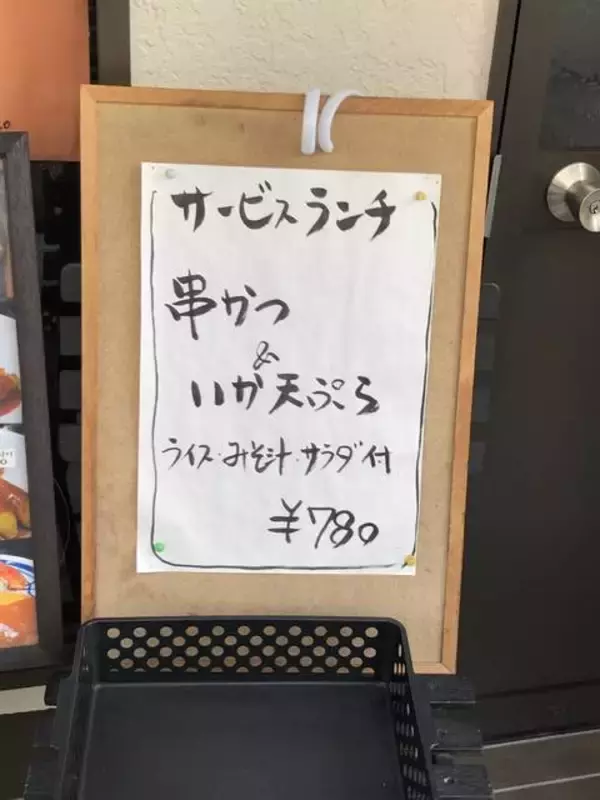 サービスランチ
串かつ
&
いか天ぷら
ライス・みそ汁・サラダ付
¥780